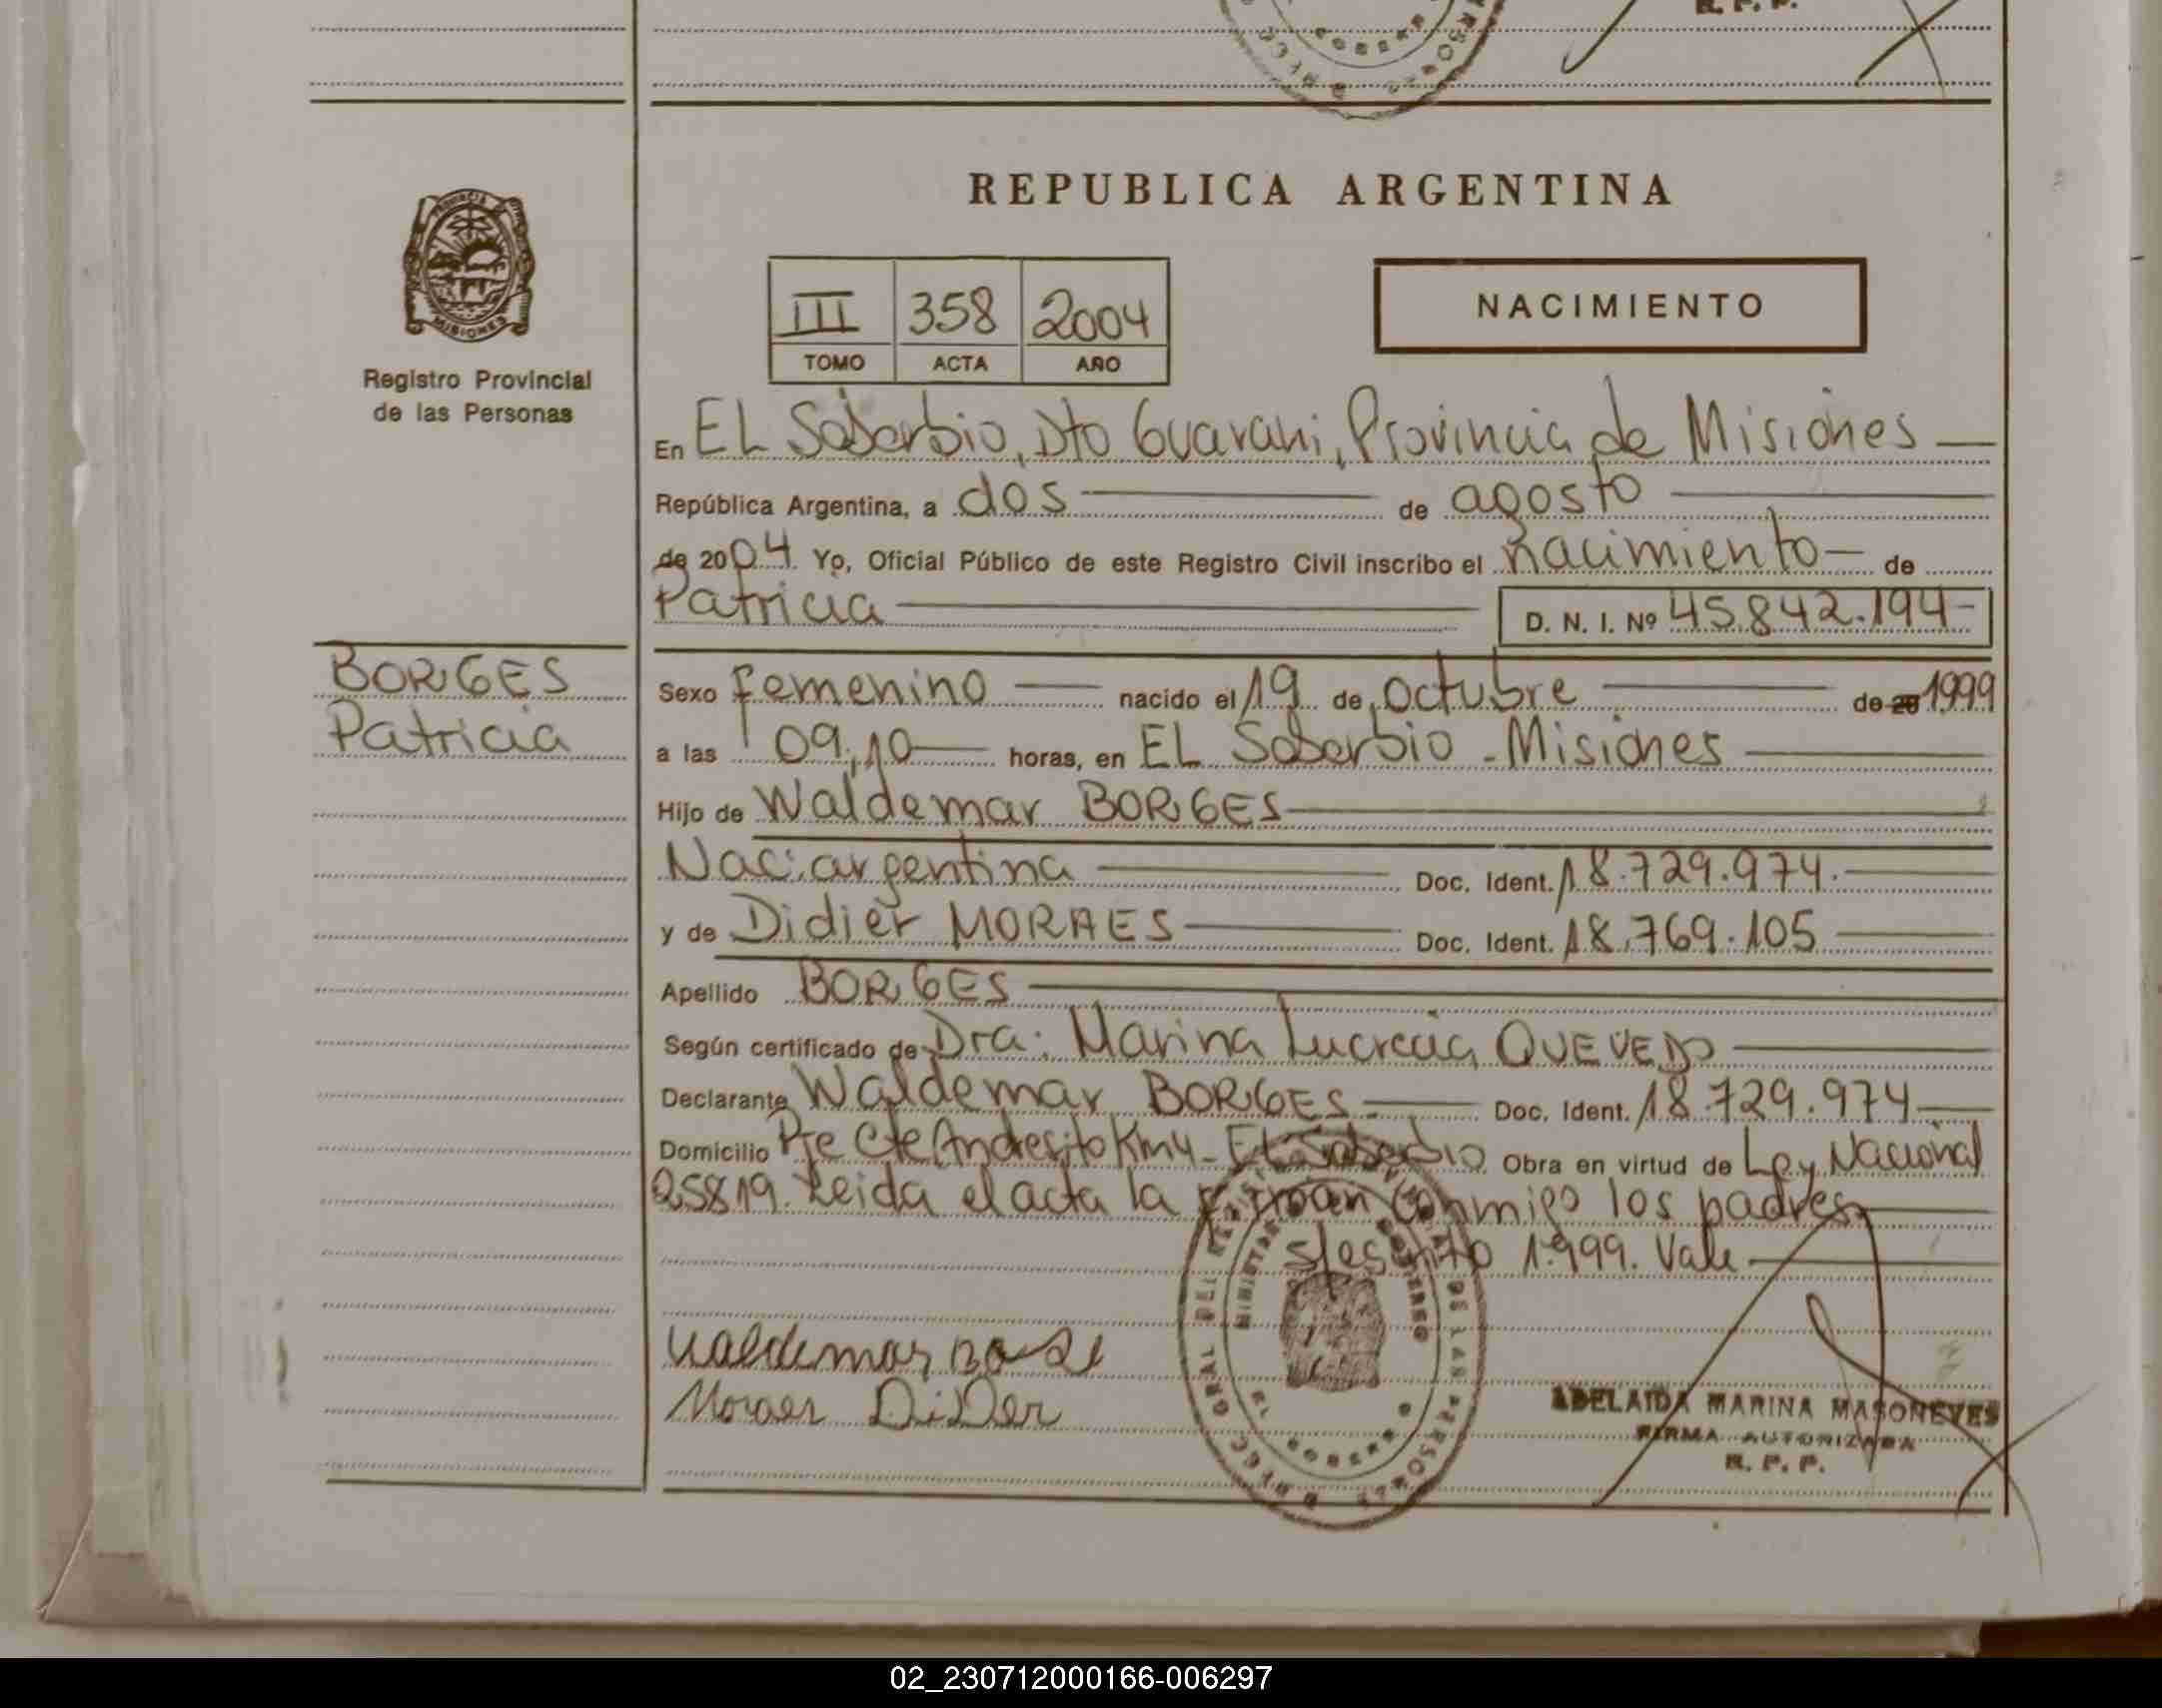 R. P. P.
REPUBLICA ARGENTINA
PROVINCIA
MISIONES
Registro Provincial
de las Personas
III 358 2004
TOMO ACTA AÑO
NACIMIENTO
En EL Soberbio, Dto Guarani, Provincia de Misiones
República Argentina, a dos de agosto
de 2004 Yo, Oficial Público de este Registro Civil inscribo el nacimiento de
Patricia D. N. I. Nº 45.842.194
BORGES
Patricia
Sexo femenino nacido el 19 de octubre de 20 1999
a las 09,10 horas, en EL Soberbio - Misiones
Hijo de Waldemar BORGES
Nac: argentina Doc. Ident. 18.729.974.
y de Didier MORAES Doc. Ident. 18.769.105
Apellido BORGES
Según certificado de Dra: Marina Lucrecia QUEVEDO
Declarante Waldemar BORGES Doc. Ident. 18.729.974
Domicilio Pje Cte Andresito Km4 - El Soberbio Obra en virtud de Ley Nacional
25819. Leida el acta la firman conmigo los padres
s/escrito 1.999. Vale
Moraes DiDer
ADELAIDA MARINA MASONEVES
FIRMA AUTORIZADA
R. P. P.
02_230712000166-006297